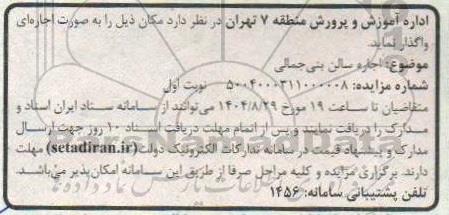 اداره آموزش و پرورش منطقه ۷ تهران در نظر دارد مکان ذیل را به صورت اجاره‌ای
واگذار نماید.
موضوع: اجاره سالن بنی‌جمالی
شماره مزایده: ۵۰۰۴۰۰۰۳۱۱۰۰۰۰۰۸ نوبت اول
متقاضیان تا ساعت ۱۹ مورخ ۱۴۰۴/۸/۲۹ می‌توانند از سامانه ستاد ایران اسناد و
مدارک را دریافت نمایند و پس از اتمام مهلت دریافت اسناد ۱۰ روز جهت ارسال
مدارک و پیشنهاد قیمت در سامانه تدارکات الکترونیک دولت (setadiran.ir) مهلت
دارند. برگزاری مزایده و کلیه مراحل صرفا از طریق این سامانه امکان پذیر می‌باشد.
تلفن پشتیبانی سامانه: ۱۴۵۶